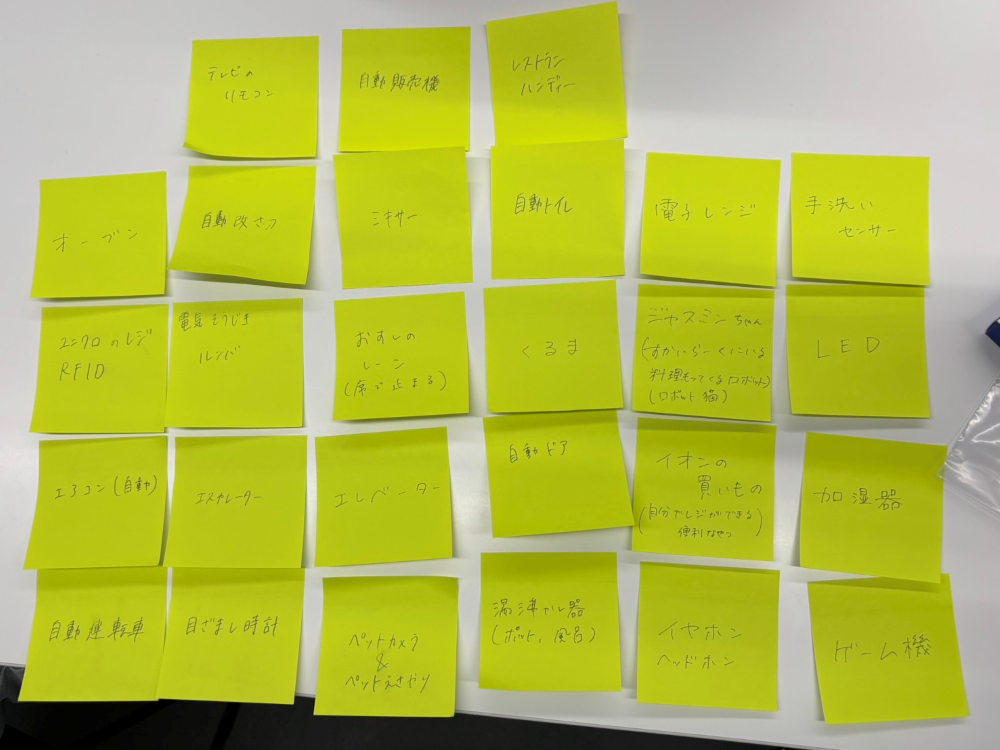 テレビの
リモコン
自動販売機
レストラン
ハンディー
オーブン
自動改さつ
ミキサー
自動トイレ
電子レンジ
手洗い
センサー
ユニクロのレジ
RFID
電気そうじき
ルンバ
おすしの
レーン
(席で止まる)
くるま
ジャスミンちゃん
(すかいらーくにいる
料理もってくるロボット)
(ロボット猫)
LED
エアコン(自動)
エスカレーター
エレベーター
自動ドア
イオンの
買いもの
(自分でレジができる
便利なやつ)
加湿器
自動運転車
目ざまし時計
ペットカメラ
&
ペットえさやり
湯沸かし器
(ポット、風呂)
イヤホン
ヘッドホン
ゲーム機